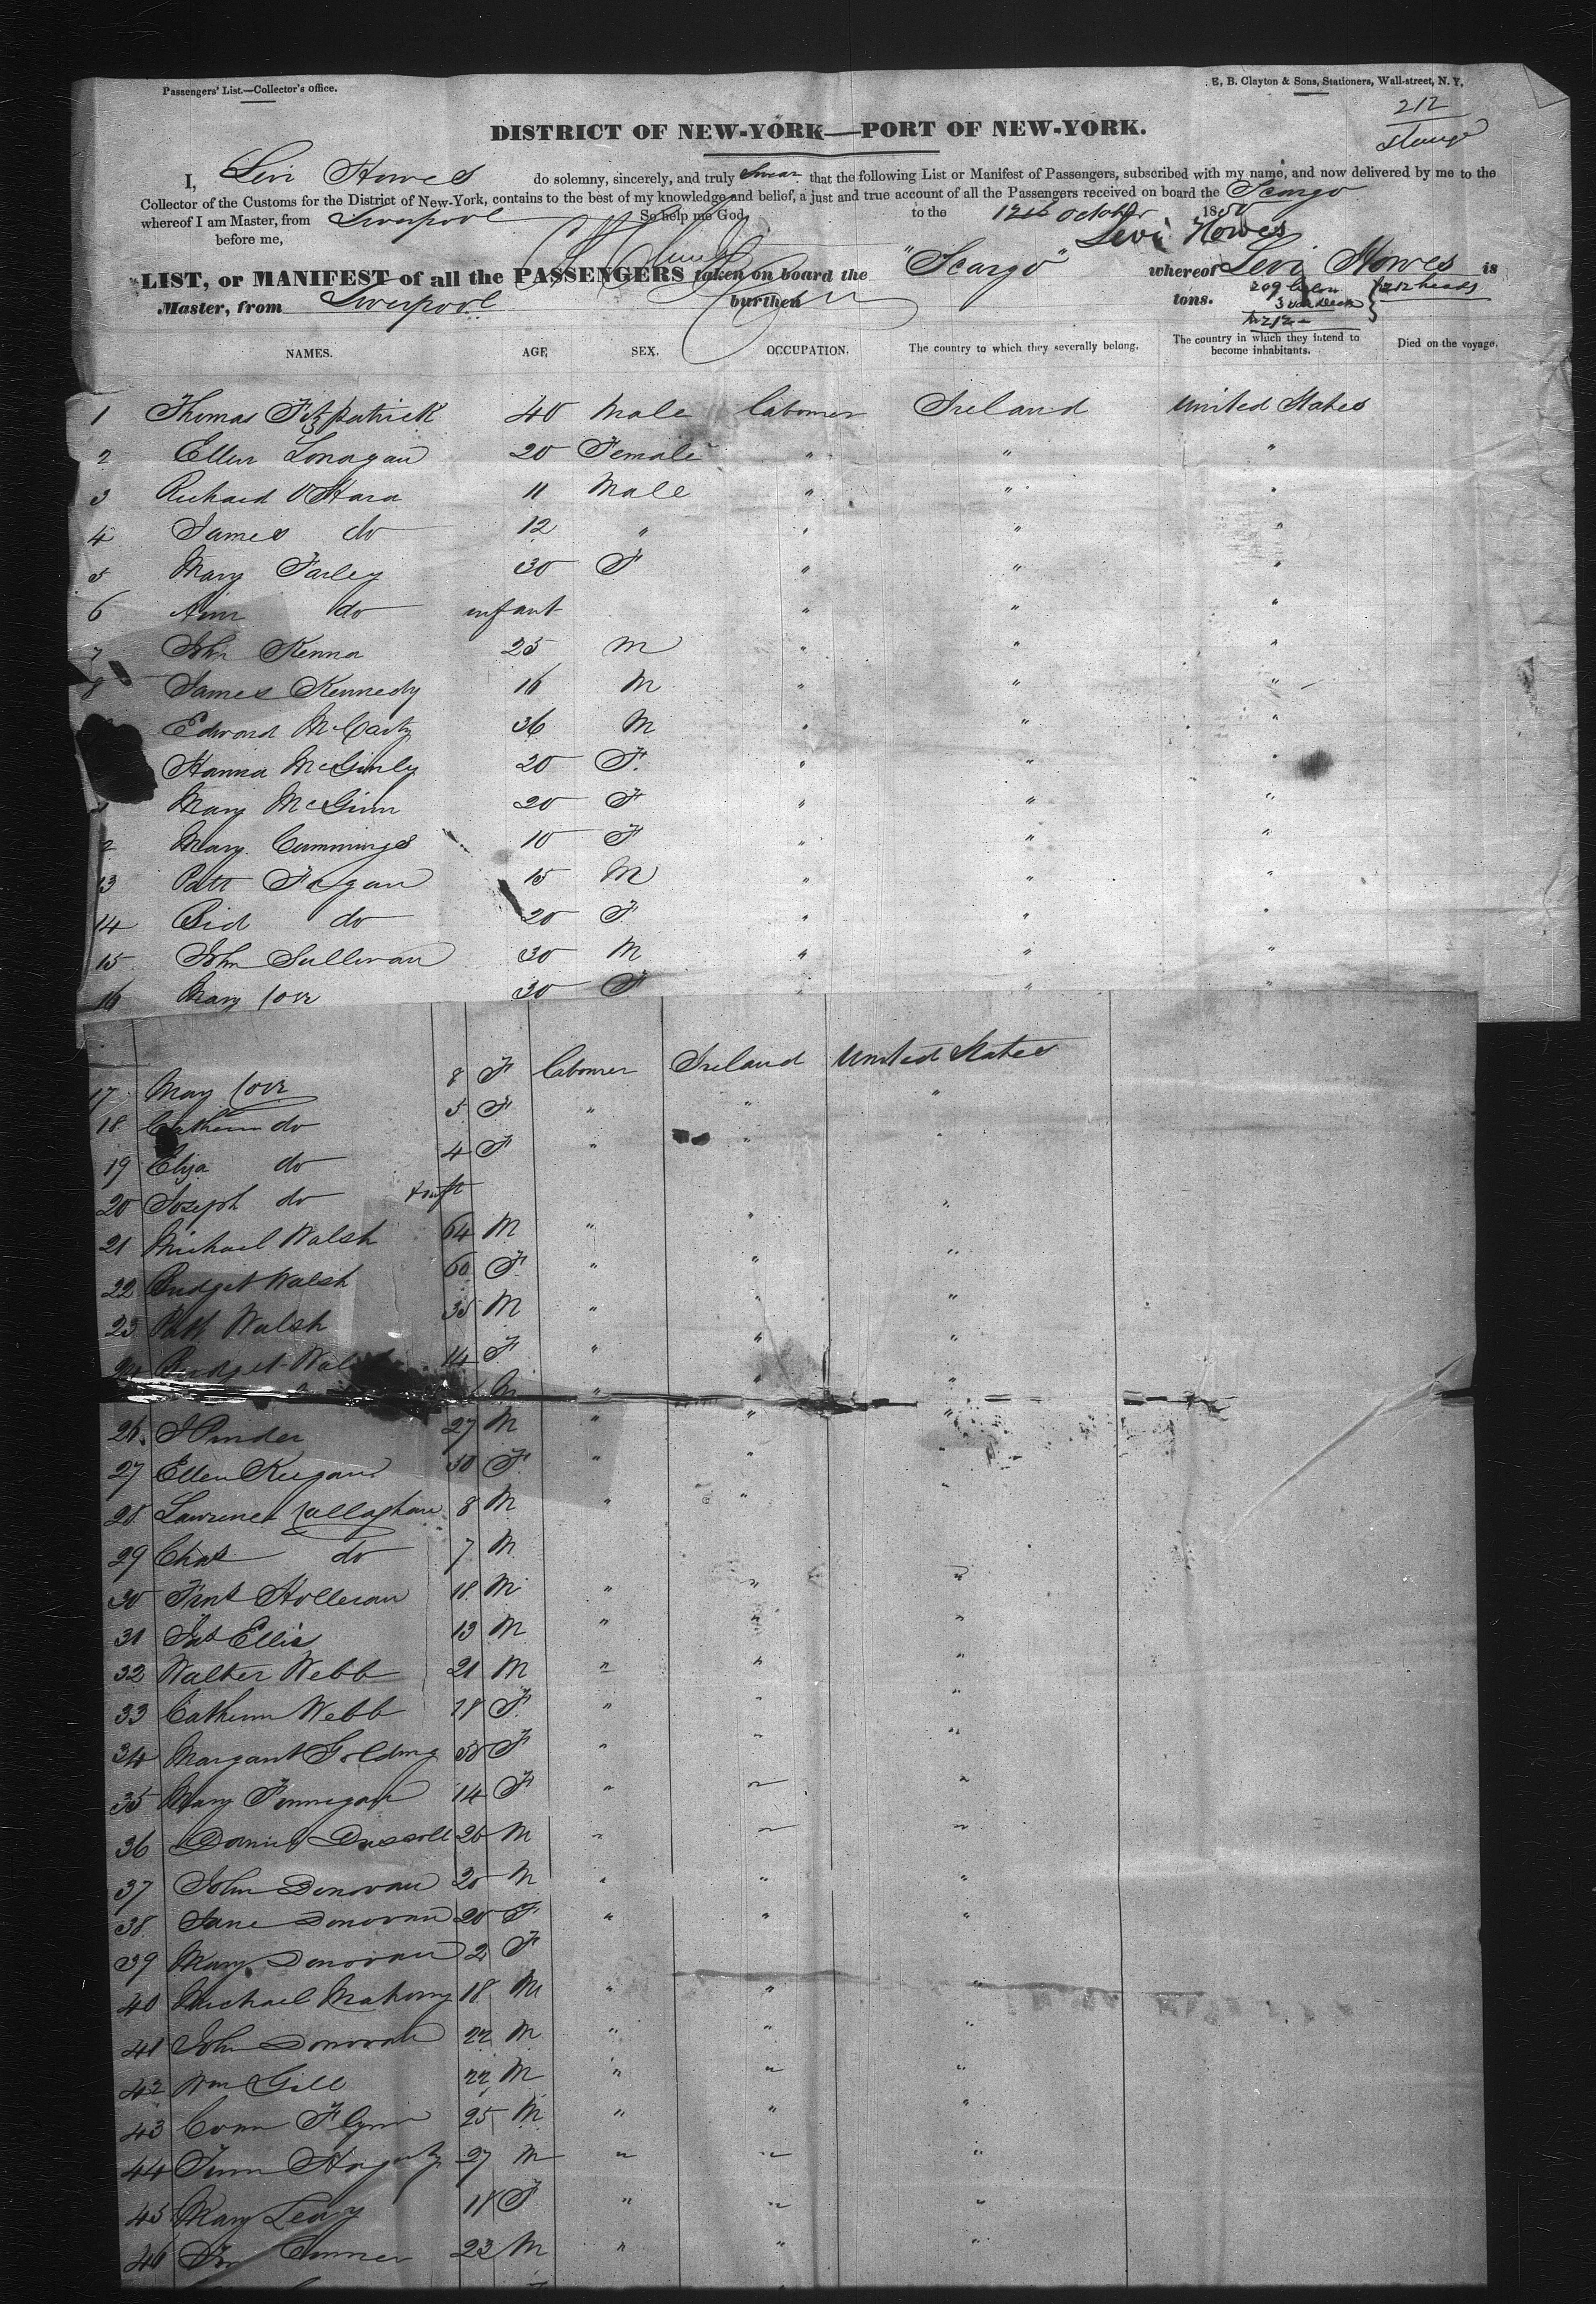 Passengers' List.—Collector's office.
E. B. Clayton & Sons, Stationers, Wall-street, N. Y.
212
DISTRICT OF NEW-YORK—PORT OF NEW-YORK.
I, Levi Howes do solemny, sincerely, and truly Swear that the following List or Manifest of Passengers, subscribed with my name, and now delivered by me to the
Collector of the Customs for the District of New-York, contains to the best of my knowledge and belief, a just and true account of all the Passengers received on board the Scargo
whereof I am Master, from Liverpool So help me God
to the 12th October 1850
before me, Levi Howes
LIST, or MANIFEST of all the PASSENGERS taken on board the "Scargo" whereof Levi Howes is
Master, from Liverpool burthen tons.
212 heads
NAMES. AGE SEX. OCCUPATION. The country to which they severally belong. The country in which they intend to become inhabitants. Died on the voyage.
1 Thomas Fitzpatrick 40 Male labourer Ireland United States
2 Ellen Lonagan 20 Female " " "
3 Richard O'Hara 11 Male " " "
4 James do 12 " " " "
5 Mary Farley 30 F " " "
6 Ann do infant " " "
7 John Kenna 25 M " " "
8 James Kennedy 16 M " " "
Edward McCarty 36 M " " "
Hanna McGinly 20 F. " " "
Mary McGinn 20 F " " "
2 Mary Cummings 10 F " " "
13 Patt Fagan 15 M " " "
14 Bid do 20 F " " "
15 John Sullivan 30 M " " "
16 Mary 30 F " " "
17 Mary 8 F labourer Ireland United States
18 Cathern do 5 F " " "
19 Eliza do 4 F " " "
20 Joseph do inft "
21 Michael Walsh 64 M " " "
22 Bridget Walsh 60 F " " "
23 Patt Walsh 35 M " " "
Bridget 14 F " " "
M " " "
26 J Pinder 27 M " " "
27 Ellen Keegan 30 F " " "
28 Lawrence Callaghan 8 M " " "
29 Chas do 7 M
30 Holleran 18 M " " "
31 Ellis 13 M " " "
32 Walter Webb 21 M " " "
33 Cathern Webb 18 F " " "
34 Margaret Golding F " " "
35 Mary Finnegan 14 F " " "
36 Daniel Driscoll 26 M " " "
37 John Donovan 20 M " " "
38 Jane Donovan 20 F " " "
39 Mary Donovan 2 F
40 Michael Mahony 18 M " " "
41 John Donovan 22 M " " "
42 Wm Gill 22 M " " "
43 Conn Flynn 25 M " " "
44 27 M " " "
45 Mary Leary 18 F " " "
46 23 M " " "